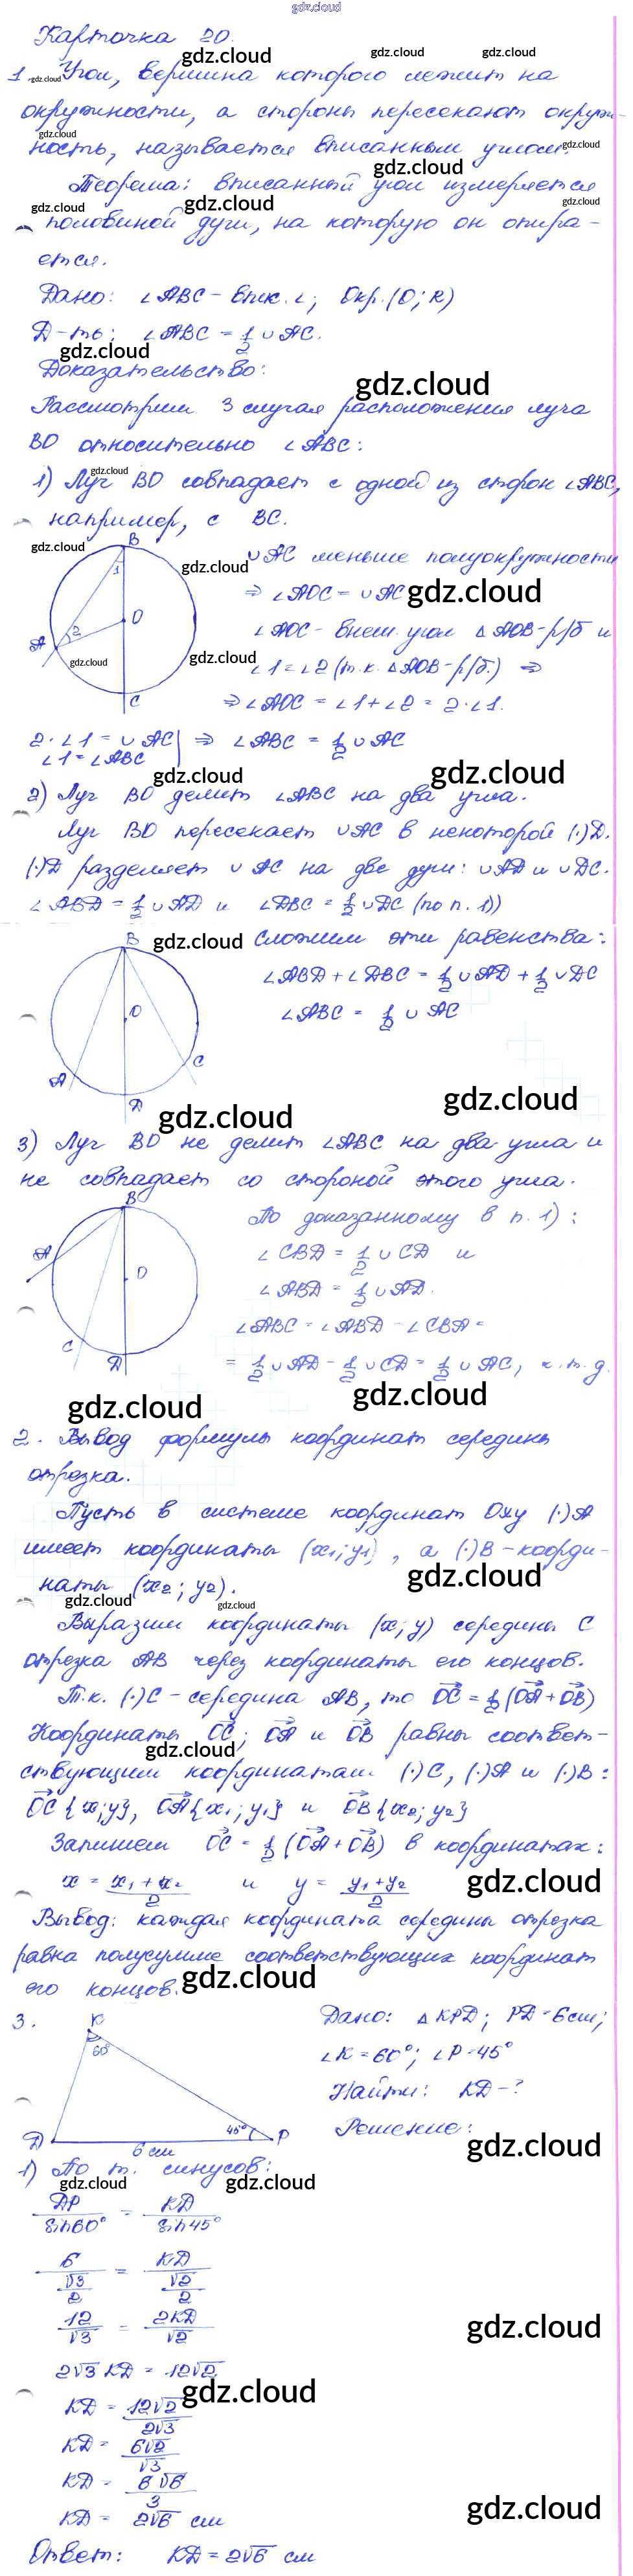 gdz.cloud
Карточка 20.
1. Угол, вершина которого лежит на
окружности, а стороны пересекают окруж-
ность, называется вписанным углом.
Теорема: вписанный угол измеряется
половиной дуги, на которую он опира-
ется.
Дано: ∠ABC - впис. ∠; Окр.(O; R)
Д-ть: ∠ABC = 1/2 ∪AC.
Доказательство:
Рассмотрим 3 случая расположения луча
BO относительно ∠ABC:
1) Луч BO совпадает с одной из сторон ∠ABC,
например, с BC.
∪AC меньше полуокружности
⇒ ∠AOC = ∪AC
∠AOC - внеш. угол △AOB - р/б и
∠1 = ∠2 (т.к. △AOB - р/б.) ⇒
⇒ ∠AOC = ∠1 + ∠2 = 2·∠1.
B
1
O
2
A
C
2·∠1 = ∪AC | ⇒ ∠ABC = 1/2 ∪AC
∠1 = ∠ABC
2) Луч BO делит ∠ABC на два угла.
Луч BO пересекает ∪AC в некоторой (·)D.
(·)D разделяет ∪AC на две дуги: ∪AD и ∪DC.
∠ABD = 1/2 ∪AD и ∠DBC = 1/2 ∪DC (по п. 1))
Сложим эти равенства:
∠ABD + ∠DBC = 1/2 ∪AD + 1/2 ∪DC
∠ABC = 1/2 ∪AC
B
O
C
A
D
3) Луч BO не делит ∠ABC на два угла и
не совпадает со стороной этого угла.
По доказанному в п. 1):
∠CBD = 1/2 ∪CD и
∠ABD = 1/2 ∪AD.
∠ABC = ∠ABD - ∠CBD =
= 1/2 ∪AD - 1/2 ∪CD = 1/2 ∪AC, ч.т.д.
B
A
O
C
D
2. Вывод формулы координат середины
отрезка.
Пусть в системе координат Oxy (·)A
имеет координаты (x₁; y₁), а (·)B - коорди-
наты (x₂; y₂).
Выразим координаты (x; y) середины C
отрезка AB через координаты его концов.
Т.к. (·)C - середина AB, то OC = 1/2 (OA + OB)
Координаты OC; OA и OB равны соответ-
ствующим координатам (·)C, (·)A и (·)B:
OC {x; y}, OA {x₁; y₁} и OB {x₂; y₂}
Запишем OC = 1/2 (OA + OB) в координатах:
x = (x₁ + x₂)/2 и y = (y₁ + y₂)/2
Вывод: каждая координата середины отрезка
равна полусумме соответствующих координат
его концов.
3.
K
60°
D
6 см
45°
P
Дано: △KPD; PD = 6 см;
∠K = 60°; ∠P = 45°
Найти: KD - ?
Решение:
1) По т. синусов:
DP/sin60° = KD/sin45°
6/(√3/2) = KD/(√2/2)
12/√3 = 2KD/√2
2√3 KD = 12√2
KD = 12√2/2√3
KD = 6√2/√3
KD = 6√6/3
KD = 2√6 см
Ответ: KD = 2√6 см